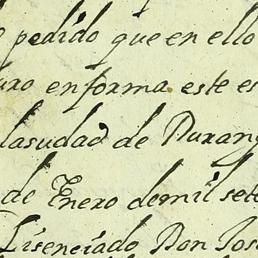 pedido que en ello
en forma este es
lasudad de Durang
de Enero demil sete
Lisenciado Don Jos